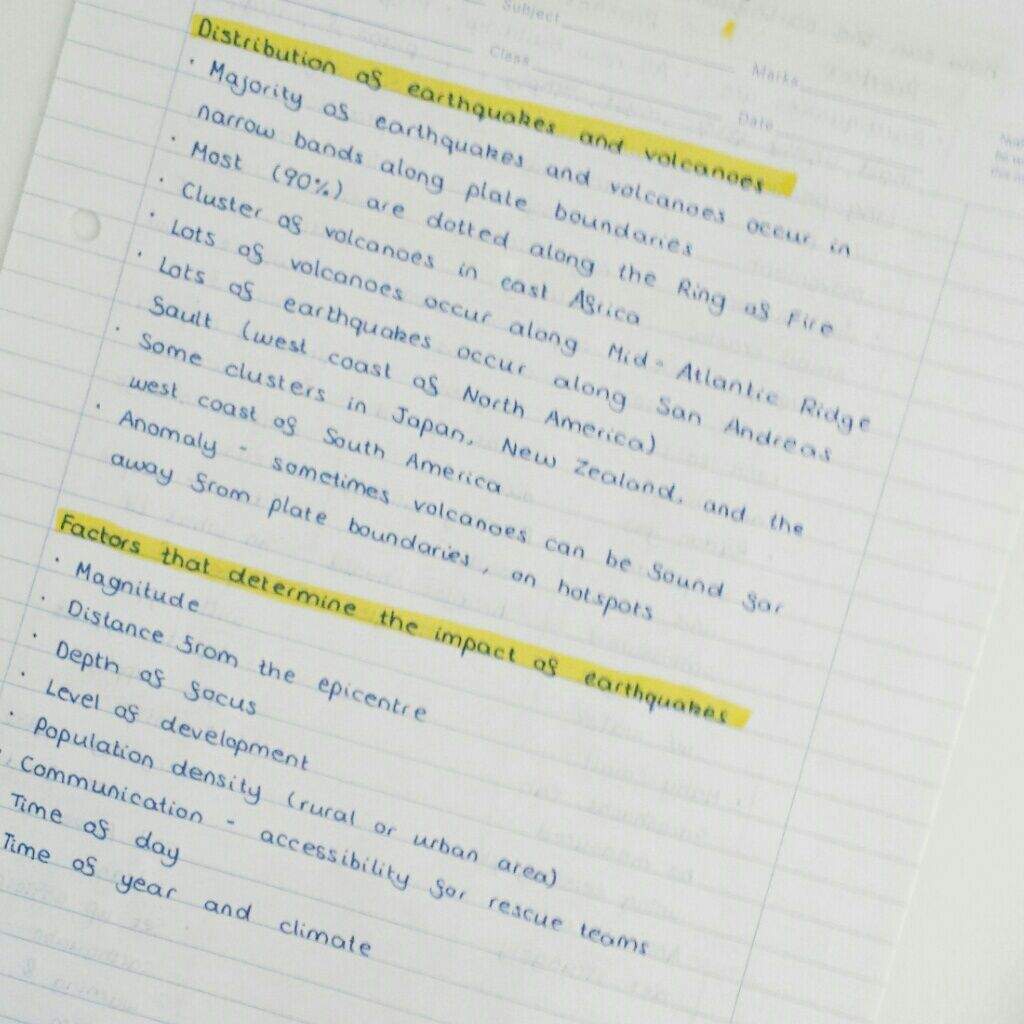 Subject
Class
Marks
Date
Distribution of earthquakes and volcanoes
· Majority of earthquakes and volcanoes occur in
narrow bands along plate boundaries
· Most (90%) are dotted along the Ring of Fire
· Cluster of volcanoes in east Africa
· Lots of volcanoes occur along Mid-Atlantic Ridge
· Lots of earthquakes occur along San Andreas
fault (west coast of North America)
· Some clusters in Japan, New Zealand, and the
west coast of South America
· Anomaly - sometimes volcanoes can be found far
away from plate boundaries, on hotspots
Factors that determine the impact of earthquakes
· Magnitude
· Distance from the epicentre
· Depth of focus
· Level of development
· Population density (rural or urban area)
· Communication - accessibility for rescue teams
Time of day
Time of year and climate